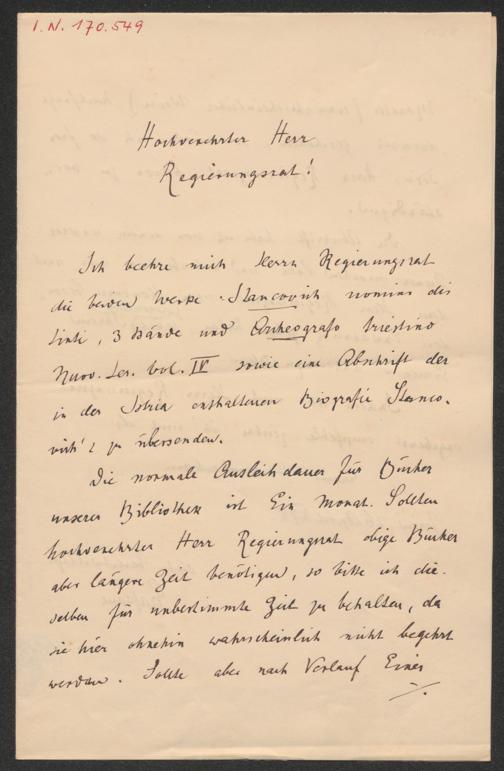 I.N. 170.549
Hochverehrter Herr
Regierungsrat!
Ich beehre mich Herrn Regierungsrat
die beiden Werke Stancovich uomini dis
tinti, 3 Bände und Archeografo triestino
Nuov. Ser. vol. IV sowie eine Abschrift der
in der Istria enthaltenen Biografie Stanco-
vich's zu übersenden.
Die normale Ausleihdauer für Bücher
unserer Bibliothek ist Ein Monat. Sollten
hochverehrter Herr Regierungsrat obige Bücher
aber längere Zeit benötigen, so bitte ich die-
selben für unbestimmte Zeit zu behalten, da
sie hier ohnehin wahrscheinlich nicht begehrt
werden. Sollte aber nach Verlauf Eines
./.